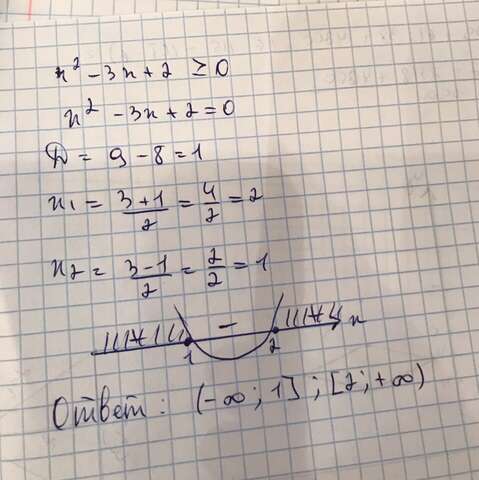 x² - 3x + 2 ≥ 0
x² - 3x + 2 = 0
D = 9 - 8 = 1
x₁ = (3+1)/2 = 4/2 = 2
x₂ = (3-1)/2 = 2/2 = 1
1 - 2 x
Ответ: (-∞; 1] ; [2; +∞)